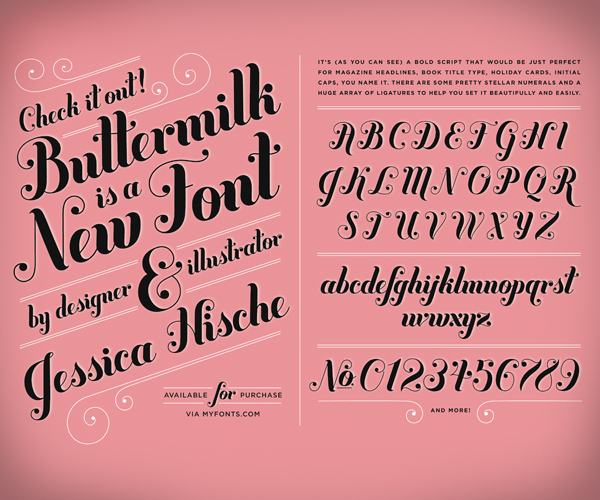 Check it out!
Buttermilk
is a
New Font
by designer & illustrator
Jessica Hische
AVAILABLE for PURCHASE
VIA MYFONTS.COM
IT'S (AS YOU CAN SEE) A BOLD SCRIPT THAT WOULD BE JUST PERFECT
FOR MAGAZINE HEADLINES, BOOK TITLE TYPE, HOLIDAY CARDS, INITIAL
CAPS, YOU NAME IT. THERE ARE SOME PRETTY STELLAR NUMERALS AND A
HUGE ARRAY OF LIGATURES TO HELP YOU SET IT BEAUTIFULLY AND EASILY.
ABCDEFGHI
JKLMNOPQR
STUVWXYZ
abcdefghijklmnopqrst
uvwxyz
No 0123456789
AND MORE!